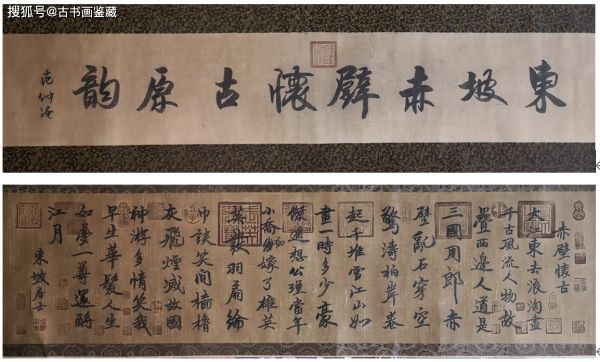 搜狐号@古书画鉴藏
東坡赤壁懷古原韵
范仲淹
赤壁懷古
大江東去浪淘盡
千古風流人物故
壘西邊人道是
三國周郎赤
壁亂石穿空
驚濤拍岸卷
起千堆雪江山如
畫一時多少豪
傑遥想公瑾當年
小喬初嫁了雄
英發羽扇綸
巾談笑間檣櫓
灰飛煙滅故國
神游多情笑我
早生華髮人生
如夢一尊還酹
江月
東坡居士